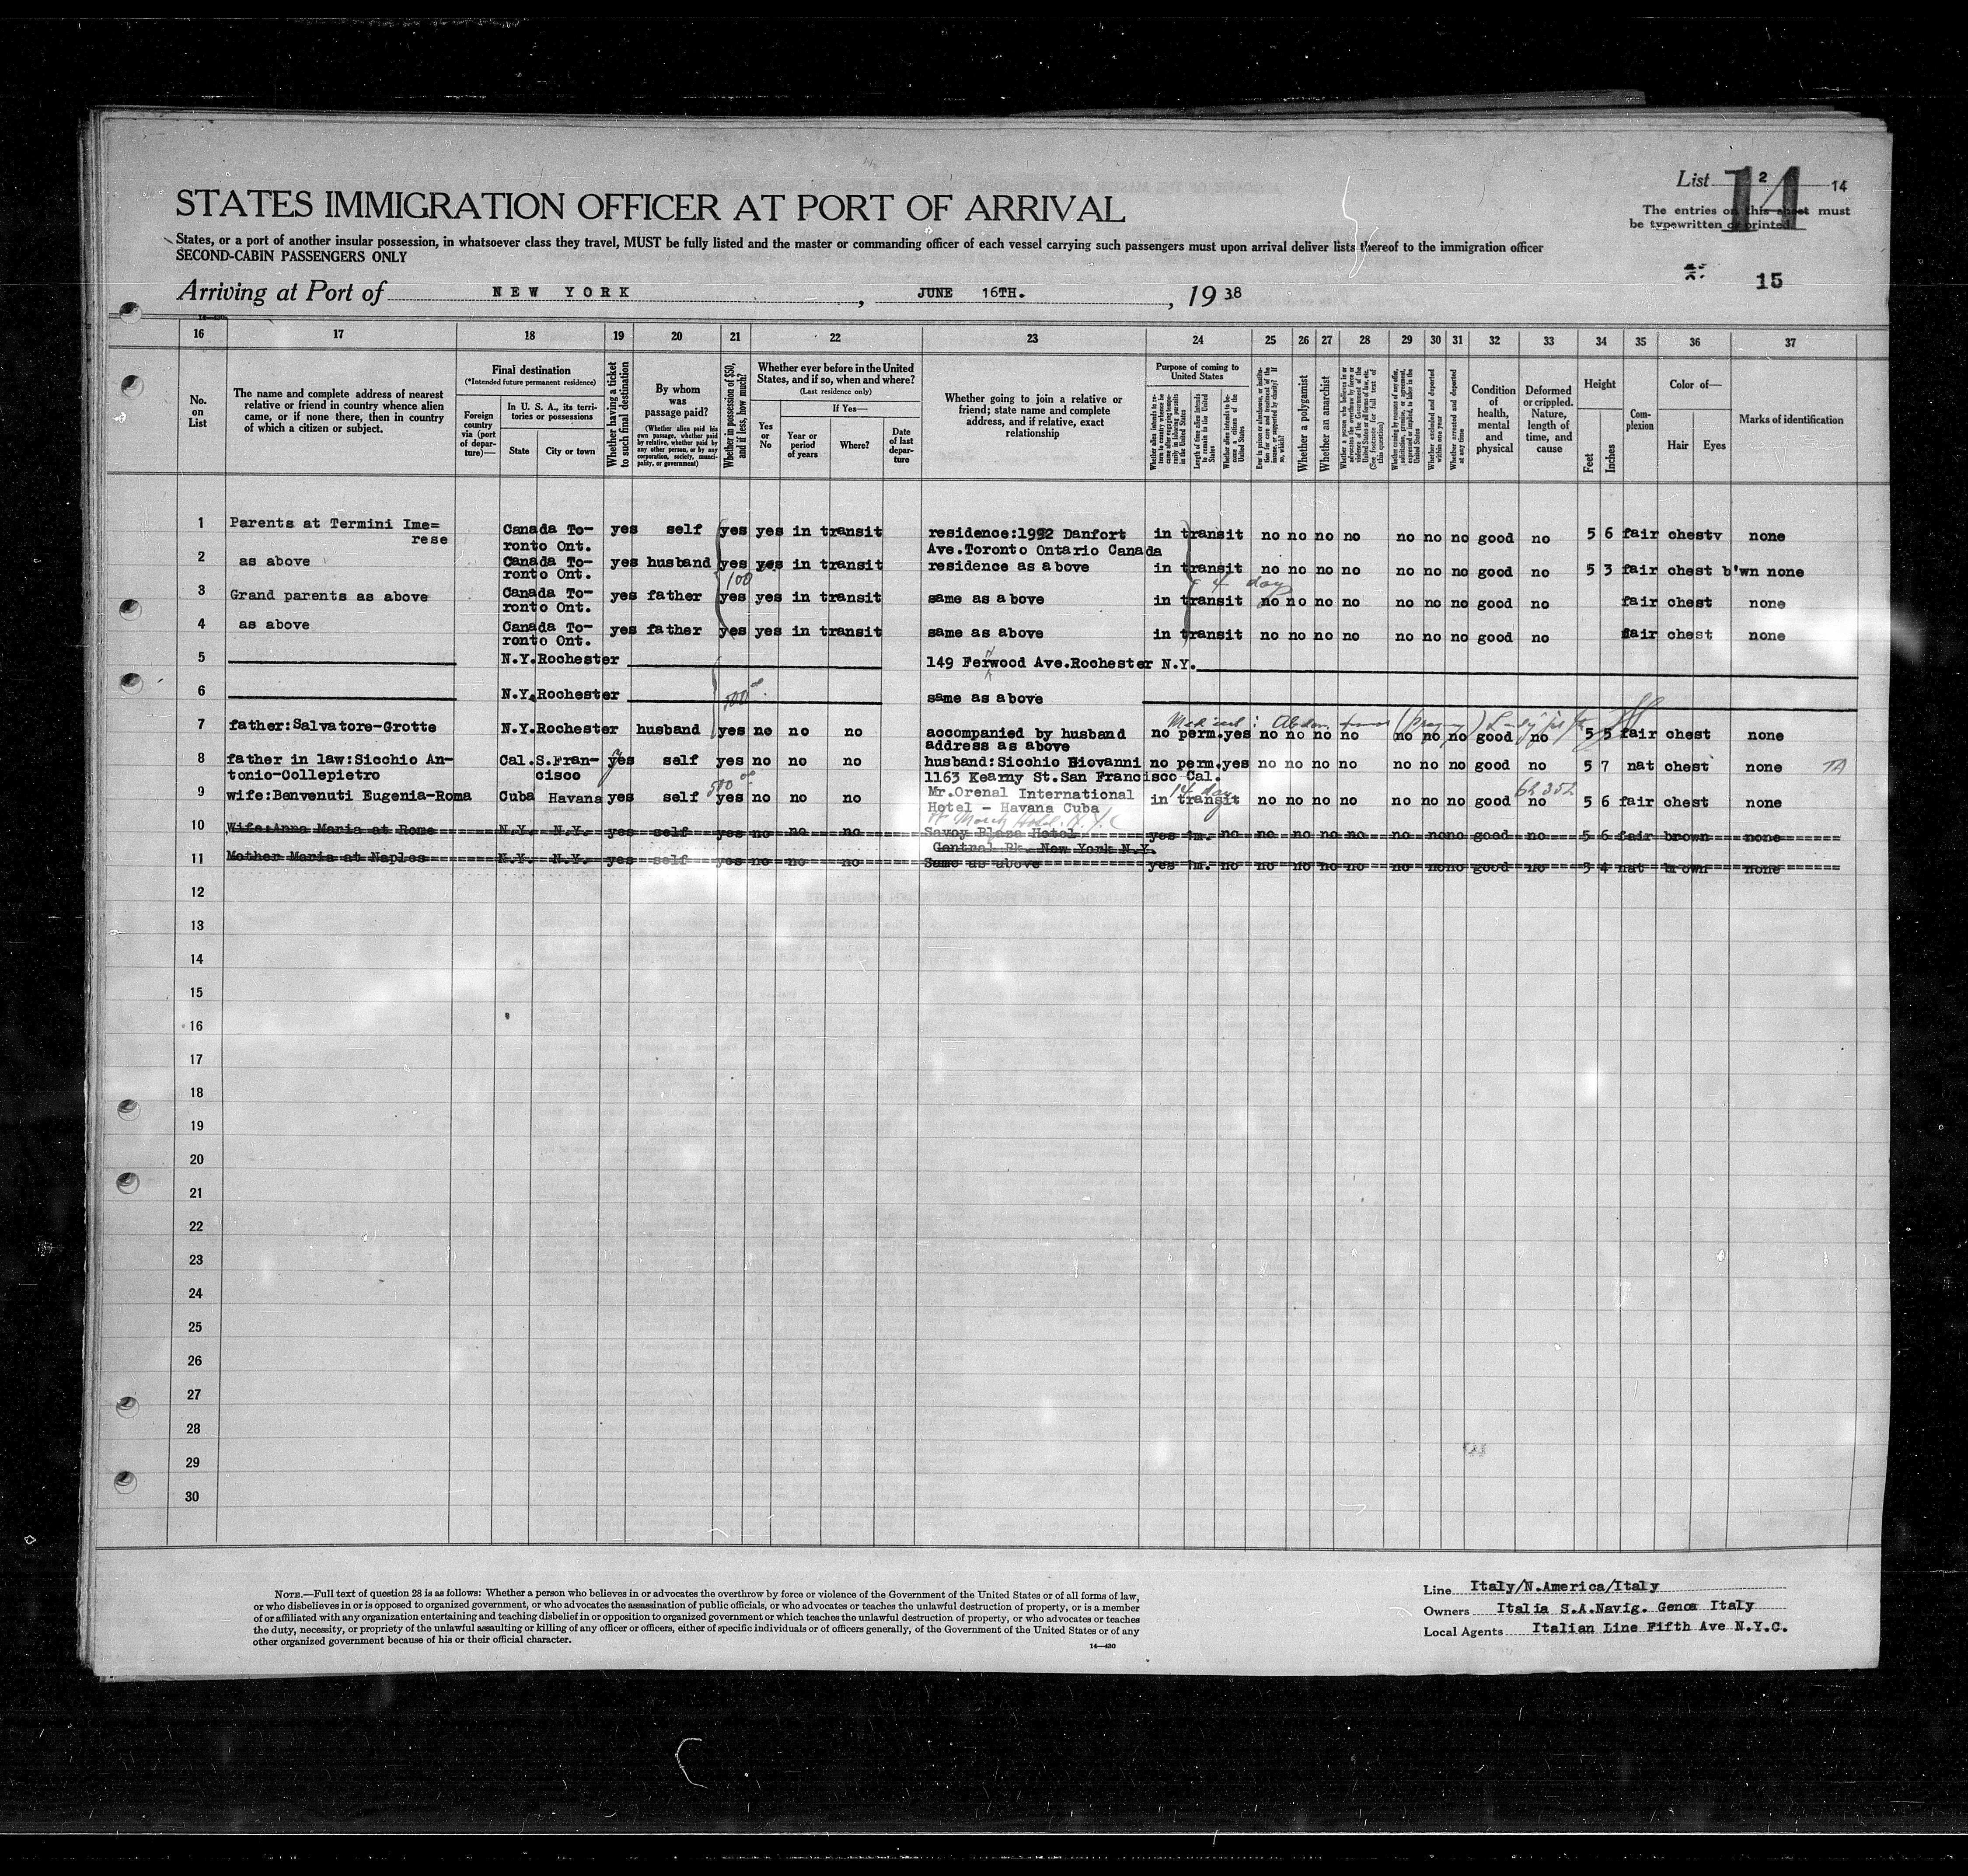 List 2 14
14
The entries on this sheet must
be typewritten or printed.
STATES IMMIGRATION OFFICER AT PORT OF ARRIVAL
States, or a port of another insular possession, in whatsoever class they travel, MUST be fully listed and the master or commanding officer of each vessel carrying such passengers must upon arrival deliver lists thereof to the immigration officer
SECOND-CABIN PASSENGERS ONLY
15
Arriving at Port of NEW YORK, JUNE 16TH., 1938
16 17 18 19 20 21 22 23 24 25 26 27 28 29 30 31 32 33 34 35 36 37
No. on List
The name and complete address of nearest relative or friend in country whence alien came, or if none there, then in country of which a citizen or subject.
Final destination
(*Intended future permanent residence)
Foreign country via (port of departure)—
In U. S. A., its territories or possessions
State City or town
Whether having a ticket to such final destination
By whom was passage paid?
(Whether alien paid his own passage, whether paid by relative, whether paid by any other person, or by any corporation, society, municipality, or government)
Whether in possession of $50, and if less, how much?
Whether ever before in the United States, and if so, when and where?
(Last residence only)
Yes or No
If Yes—
Year or period of years
Where?
Date of last departure
Whether going to join a relative or friend; state name and complete address, and if relative, exact relationship
Purpose of coming to United States
Length of time alien intends to remain in the United States
Whether alien intends to become a citizen of the United States
Whether a polygamist
Whether an anarchist
Whether excluded and deported within one year
Whether arrested and deported at any time
Condition of health, mental and physical
Deformed or crippled. Nature, length of time, and cause
Height
Feet Inches
Complexion
Color of—
Hair Eyes
Marks of identification
1 Parents at Termini Ime= Canada To- yes self yes yes in transit residence:1992 Danfort in transit no no no no no no no good no 5 6 fair chestv none
rese ronto Ont. Ave.Toronto Ontario Canada
2 as above Canada To- yes husband yes yes in transit residence as above in transit no no no no no no no good no 5 3 fair chest b'wn none
ronto Ont. 100 4 day
3 Grand parents as above Canada To- yes father yes yes in transit same as above in transit no no no no no no no good no fair chest none
ronto Ont.
4 as above Canada To- yes father yes yes in transit same as above in transit no no no no no no no good no fair chest none
ronto Ont.
5 N.Y.Rochester 149 Ferwood Ave.Rochester N.Y.
6 N.Y.Rochester same as above
500
7 father:Salvatore-Grotte N.Y.Rochester husband yes no no no accompanied by husband no perm.yes no no no no no no no good no 5 5 fair chest none
address as above
8 father in law:Sicchio An- Cal.S.Fran- yes self yes no no no husband:Sicchio Giovanni no perm.yes no no no no no no no good no 5 7 nat chest none
tonio-Collepietro cisco 1163 Kearny St.San Francisco Cal.
9 wife:Benvenuti Eugenia-Roma Cuba Havana yes self 500 yes no no no Mr.Orenal International in transit 14 day no no no no no no no good no 5 6 fair chest none
Hotel - Havana Cuba
10 Wife:Anna Maria at Rome N.Y. N.Y. yes self yes no no no Savoy Plaza Hotel yes 1m. no no no no no no no no good no 5 6 fair brown none
Central Pk. New York N.Y.
11 Mother Maria at Naples N.Y. N.Y. yes self yes no no no Same as above yes 1m. no no no no no no no no good no 5 4 nat brown none
12
13
14
15
16
17
18
19
20
21
22
23
24
25
26
27
28
29
30
NOTE.—Full text of question 28 is as follows: Whether a person who believes in or advocates the overthrow by force or violence of the Government of the United States or of all forms of law,
or who disbelieves in or is opposed to organized government, or who advocates the assassination of public officials, or who advocates or teaches the unlawful destruction of property, or is a member
of or affiliated with any organization entertaining and teaching disbelief in or opposition to organized government or which teaches the unlawful destruction of property, or who advocates or teaches
the duty, necessity, or propriety of the unlawful assaulting or killing of any officer or officers, either of specific individuals or of officers generally, of the Government of the United States or of any
other organized government because of his or their official character.
14—430
Line Italy/N.America/Italy
Owners Italia S.A.Navig. Genoa Italy
Local Agents Italian Line Fifth Ave N.Y.C.